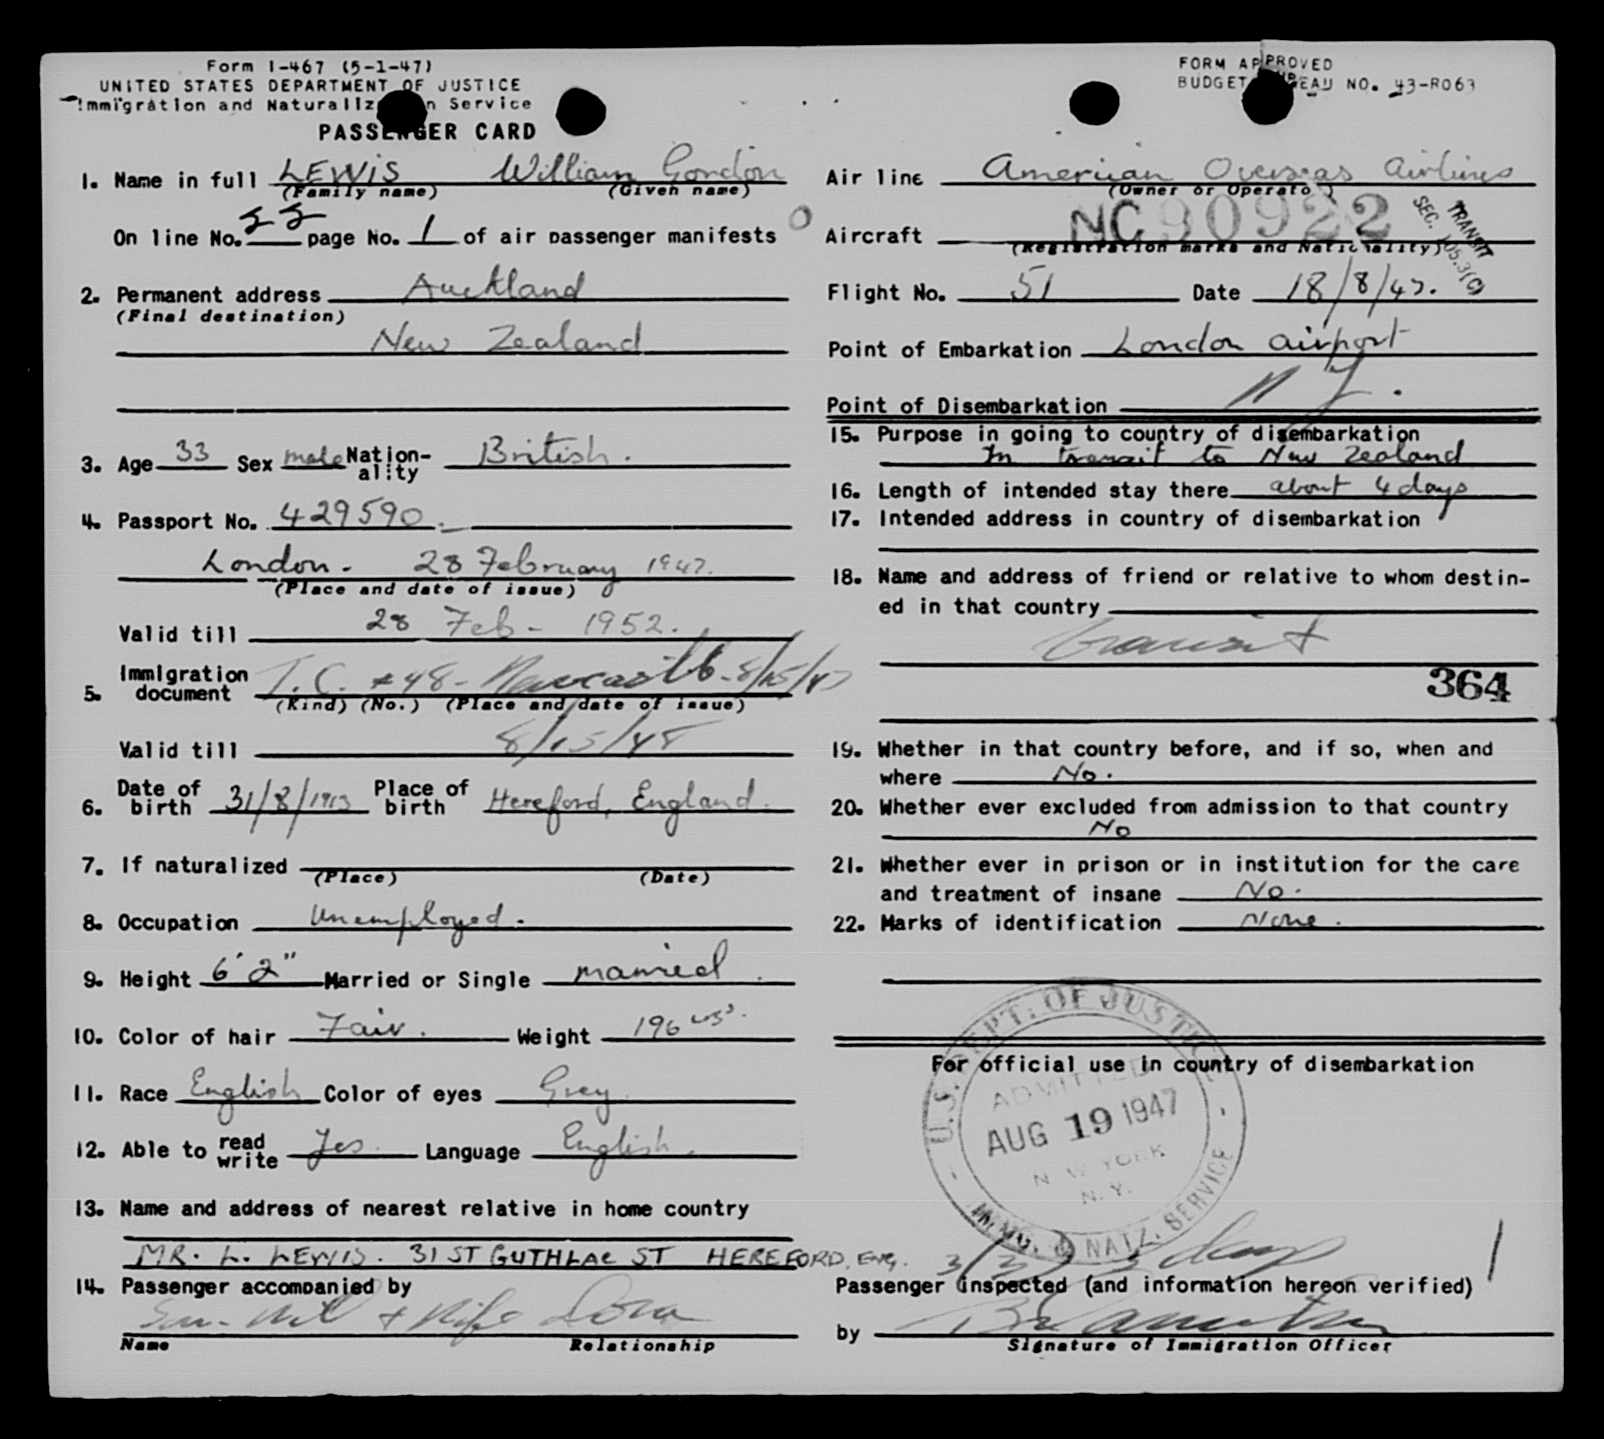 Form I-467 (5-1-47)
UNITED STATES DEPARTMENT OF JUSTICE
Immigration and Naturalization Service
PASSENGER CARD
FORM APPROVED
BUDGET BUREAU NO. 43-R063
1. Name in full LEWIS William Gordon
(Family name) (Given name)
On line No. 22 page No. 1 of air passenger manifests
2. Permanent address Auckland
(Final destination)
New Zealand
3. Age 33 Sex male Nation-ality British.
4. Passport No. 429590.
London - 28 February 1947.
(Place and date of issue)
Valid till 28 Feb - 1952.
5. Immigration document T.C. #48 - Newcastle - 8/15/47
(Kind) (No.) (Place and date of issue)
Valid till 8/15/48
6. Date of birth 31/8/1913 Place of birth Hereford, England.
7. If naturalized
(Place) (Date)
8. Occupation Unemployed.
9. Height 6' 2" Married or Single married.
10. Color of hair Fair. Weight 196 lbs.
11. Race English Color of eyes Grey.
12. Able to read write Yes. Language English.
13. Name and address of nearest relative in home country
MR. L. LEWIS. 31 ST GUTHLAC ST HEREFORD. ENG.
14. Passenger accompanied by
+ Wife
Name Relationship
Air line American Overseas Airlines
(Owner or Operator)
Aircraft NC90922
(Registration marks and Nationality)
TRANSIT
SEC. 105.3(C)
Flight No. 51 Date 18/8/47.
Point of Embarkation London airport
Point of Disembarkation N Y.
15. Purpose in going to country of disembarkation
In transit to New Zealand
16. Length of intended stay there about 4 days
17. Intended address in country of disembarkation
18. Name and address of friend or relative to whom destin-
ed in that country
transit
364
19. Whether in that country before, and if so, when and
where No.
20. Whether ever excluded from admission to that country
No
21. Whether ever in prison or in institution for the care
and treatment of insane No.
22. Marks of identification None.
For official use in country of disembarkation
U.S. DEPT. OF JUSTICE
ADMITTED
AUG 19 1947
NEW YORK
N.Y.
IMMG. & NATZ. SERVICE
days
Passenger inspected (and information hereon verified)
by
Signature of Immigration Officer